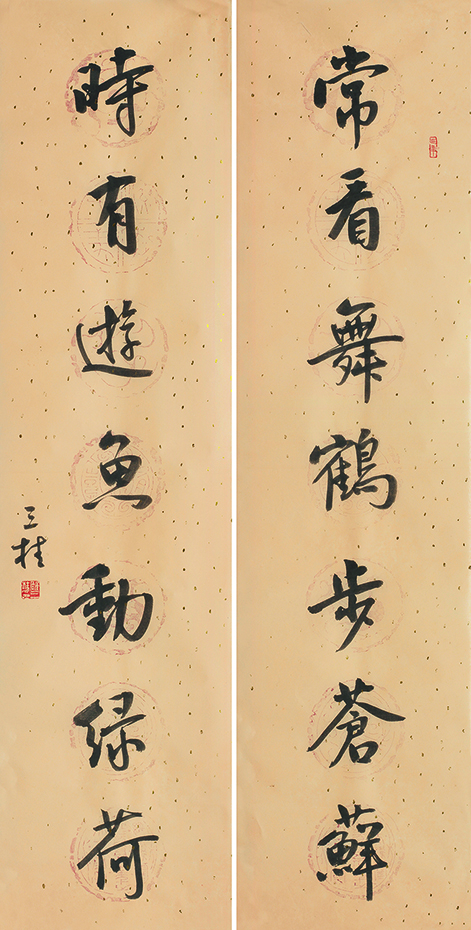 常看舞鶴步蒼蘚
時有遊魚動綠荷
三桂